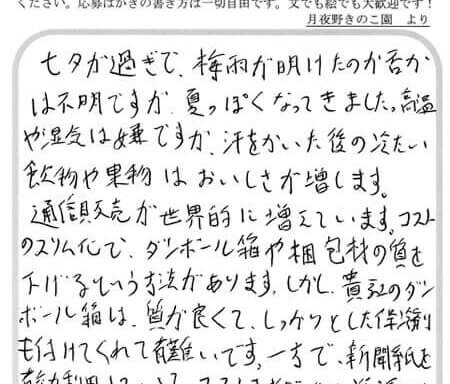 ください。応募はがきの書き方は一切自由です。文でも絵でも大歓迎です！
月夜野きのこ園　より
七夕が過ぎて、梅雨が明けたのか否か
は不明ですが、夏っぽくなってきました。高温
や湿気は嫌ですが、汗をかいた後の冷たい
飲物や果物はおいしさが増します。
通信販売が世界的に増えています。コスト
のスリム化で、ダンボール箱や梱包材の質を
下げるという方法があります。しかし、貴社のダン
ボール箱は、質が良くて、しっかりとした保冷剤
も付けてくれて有難いです。一方で、新聞紙を